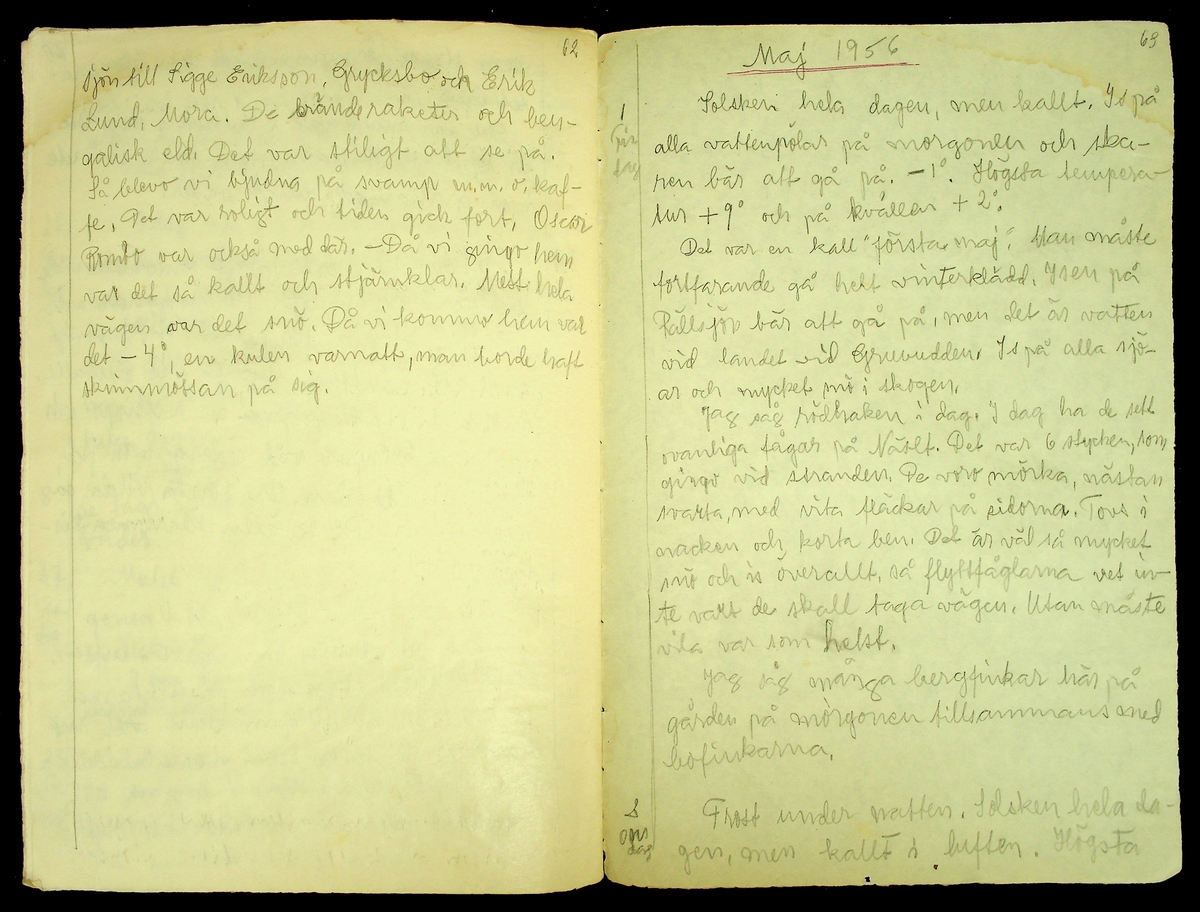 62
sjön till Sigge Eriksson, Grycksbo och Erik
Lund, Mora. De brände raketer och ben-
galisk eld. Det var stiligt att se på.
Så blevo vi bjudna på svamp m.m. o. kaf-
fe. Det var roligt och tiden gick fort. Oscar
Rombo var också med där. – Då vi gingo hem
var det så kallt och stjärnklar. Mest hela
vägen var det snö. Då vi kommo hem var
det – 4°, en kulen varnatt, man borde haft
skinnmössan på sig.
63
Maj 1956
1
Tis
dag
Solsken hela dagen, men kallt. Is på
alla vattenpölar på morgonen och ska-
ren bär att gå på. –1°. Högsta tempera-
tur +9° och på kvällen +2°.
Det var en kall "första maj". Man måste
fortfarande gå helt vinterklädd. Isen på
Rällsjön bär att gå på, men det är vatten
vid landet vid Gruvudden. Is på alla sjö-
ar och mycket snö i skogen.
Jag såg rödhaken i dag. I dag ha de sett
ovanliga fågar på Näset. Det var 6 stycken, som
gingo vid stranden. De voro mörka, nästan
svarta, med vita fläckar på sidorna. Tovs i
nacken och korta ben. Det är väl så mycket
snö och is överallt, så flyttfåglarna vet in-
te vart de skall taga vägen. Utan måste
vila var som helst.
Jag såg många bergfinkar här på
gården på morgonen tillsammans med
bofinkarna.
2
Ons
dag
Frost under natten. Solsken hela da-
gen, men kallt i luften. Högsta